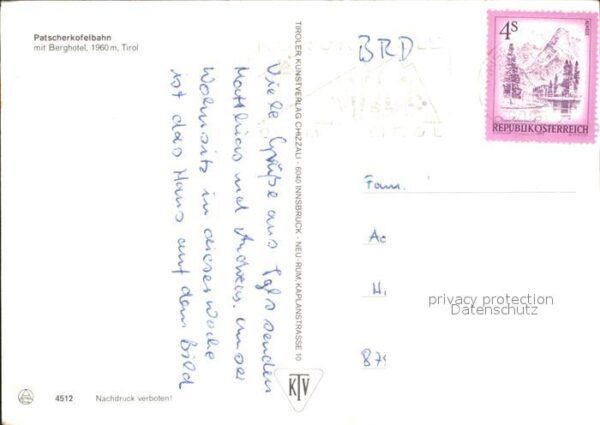 Patscherkofelbahn
mit Berghotel, 1960 m, Tirol
Viele Grüße aus Igls senden
Matthias und Andreas. Unser
Wohnsitz in dieser Woche
ist das Haus auf dem Bild
4512 Nachdruck verboten!
TIROLER KUNSTVERLAG CHIZZALI · 6040 INNSBRUCK - NEU-RUM, KAPLANSTRASSE 10
KTV
BRD
4S
REPUBLIK ÖSTERREICH
Fam.
Ac
H,
privacy protection
Datenschutz